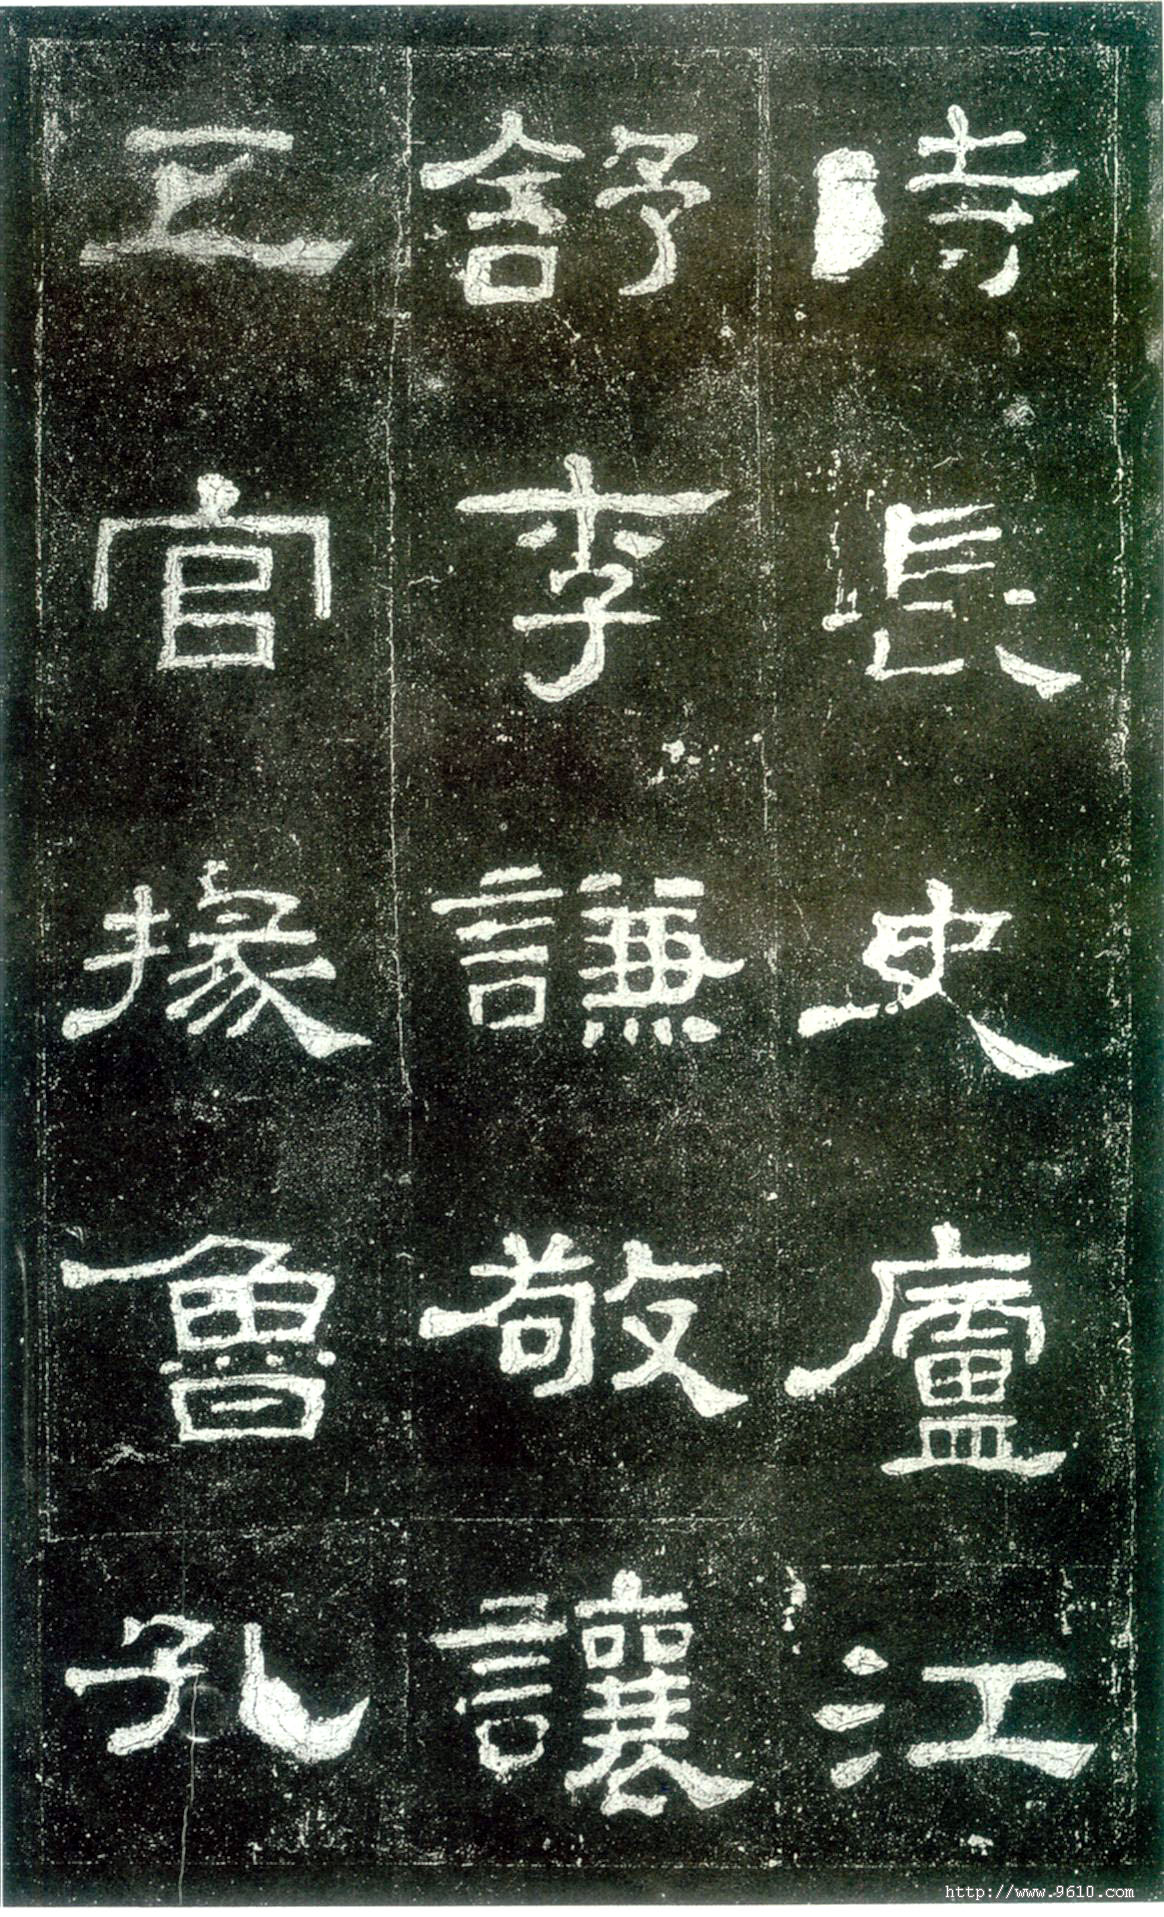 時長史廬江
舒李謙敬讓
五官掾魯孔
http://www.9610.com